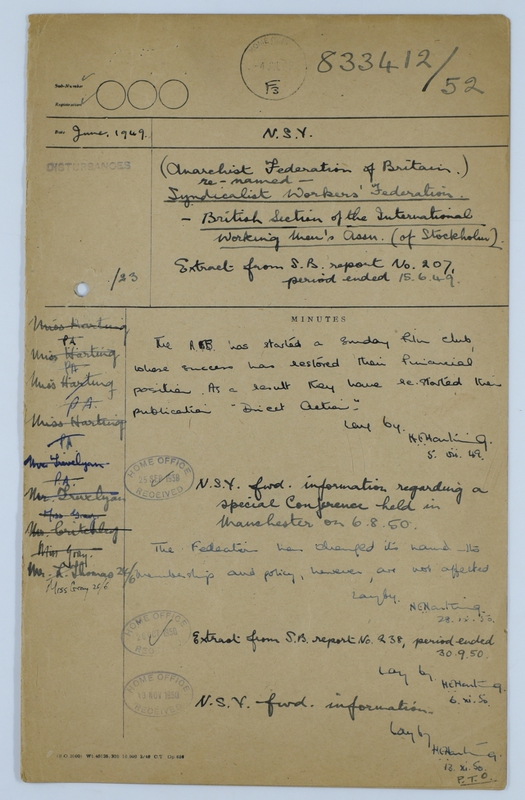 833412/52
F3
Sub-Number
Registration
Date June, 1949.
N.S.Y.
DISTURBANCES
(Anarchist Federation of Britain.)
re-named —
Syndicalist Workers' Federation.
— British Section of the International
Working Men's Assn. (of Stockholm).
Extract from S.B. report No. 207,
period ended 15.6.49.
/23
MINUTES
Miss Harting
PA
Miss Harting
PA
Miss Harting
PA.
Miss Harting
PA
PA.
Miss Gray
Mr. Critchley
Miss Gray.
Mr. Thomas 26/6
Miss Gray 26/6
The has started a Sunday film club,
whose success has restored their financial
position. As a result they have re-started their
publication "Direct Action".
Lay by.
HEHarting.
49.
HOME OFFICE
25 SEP 1950
RECEIVED
N.S.Y. fwd. information regarding a
special Conference held in
Manchester on 6.8.50.
The Federation has changed its name — its
membership and policy, however, are not affected
Lay by.
HEHarting.
HOME OFFICE
Extract from S.B. report No. 238, period ended
30.9.50.
Lay by
HEHarting.
6.xi.50.
HOME OFFICE
RECEIVED
N.S.Y. fwd. information.
Lay by
HEHarting.
xi.50.
P.T.O.